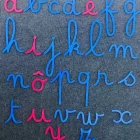 a b c d e f g
h i j k l m
n ô p q r s
t u v w x
y z